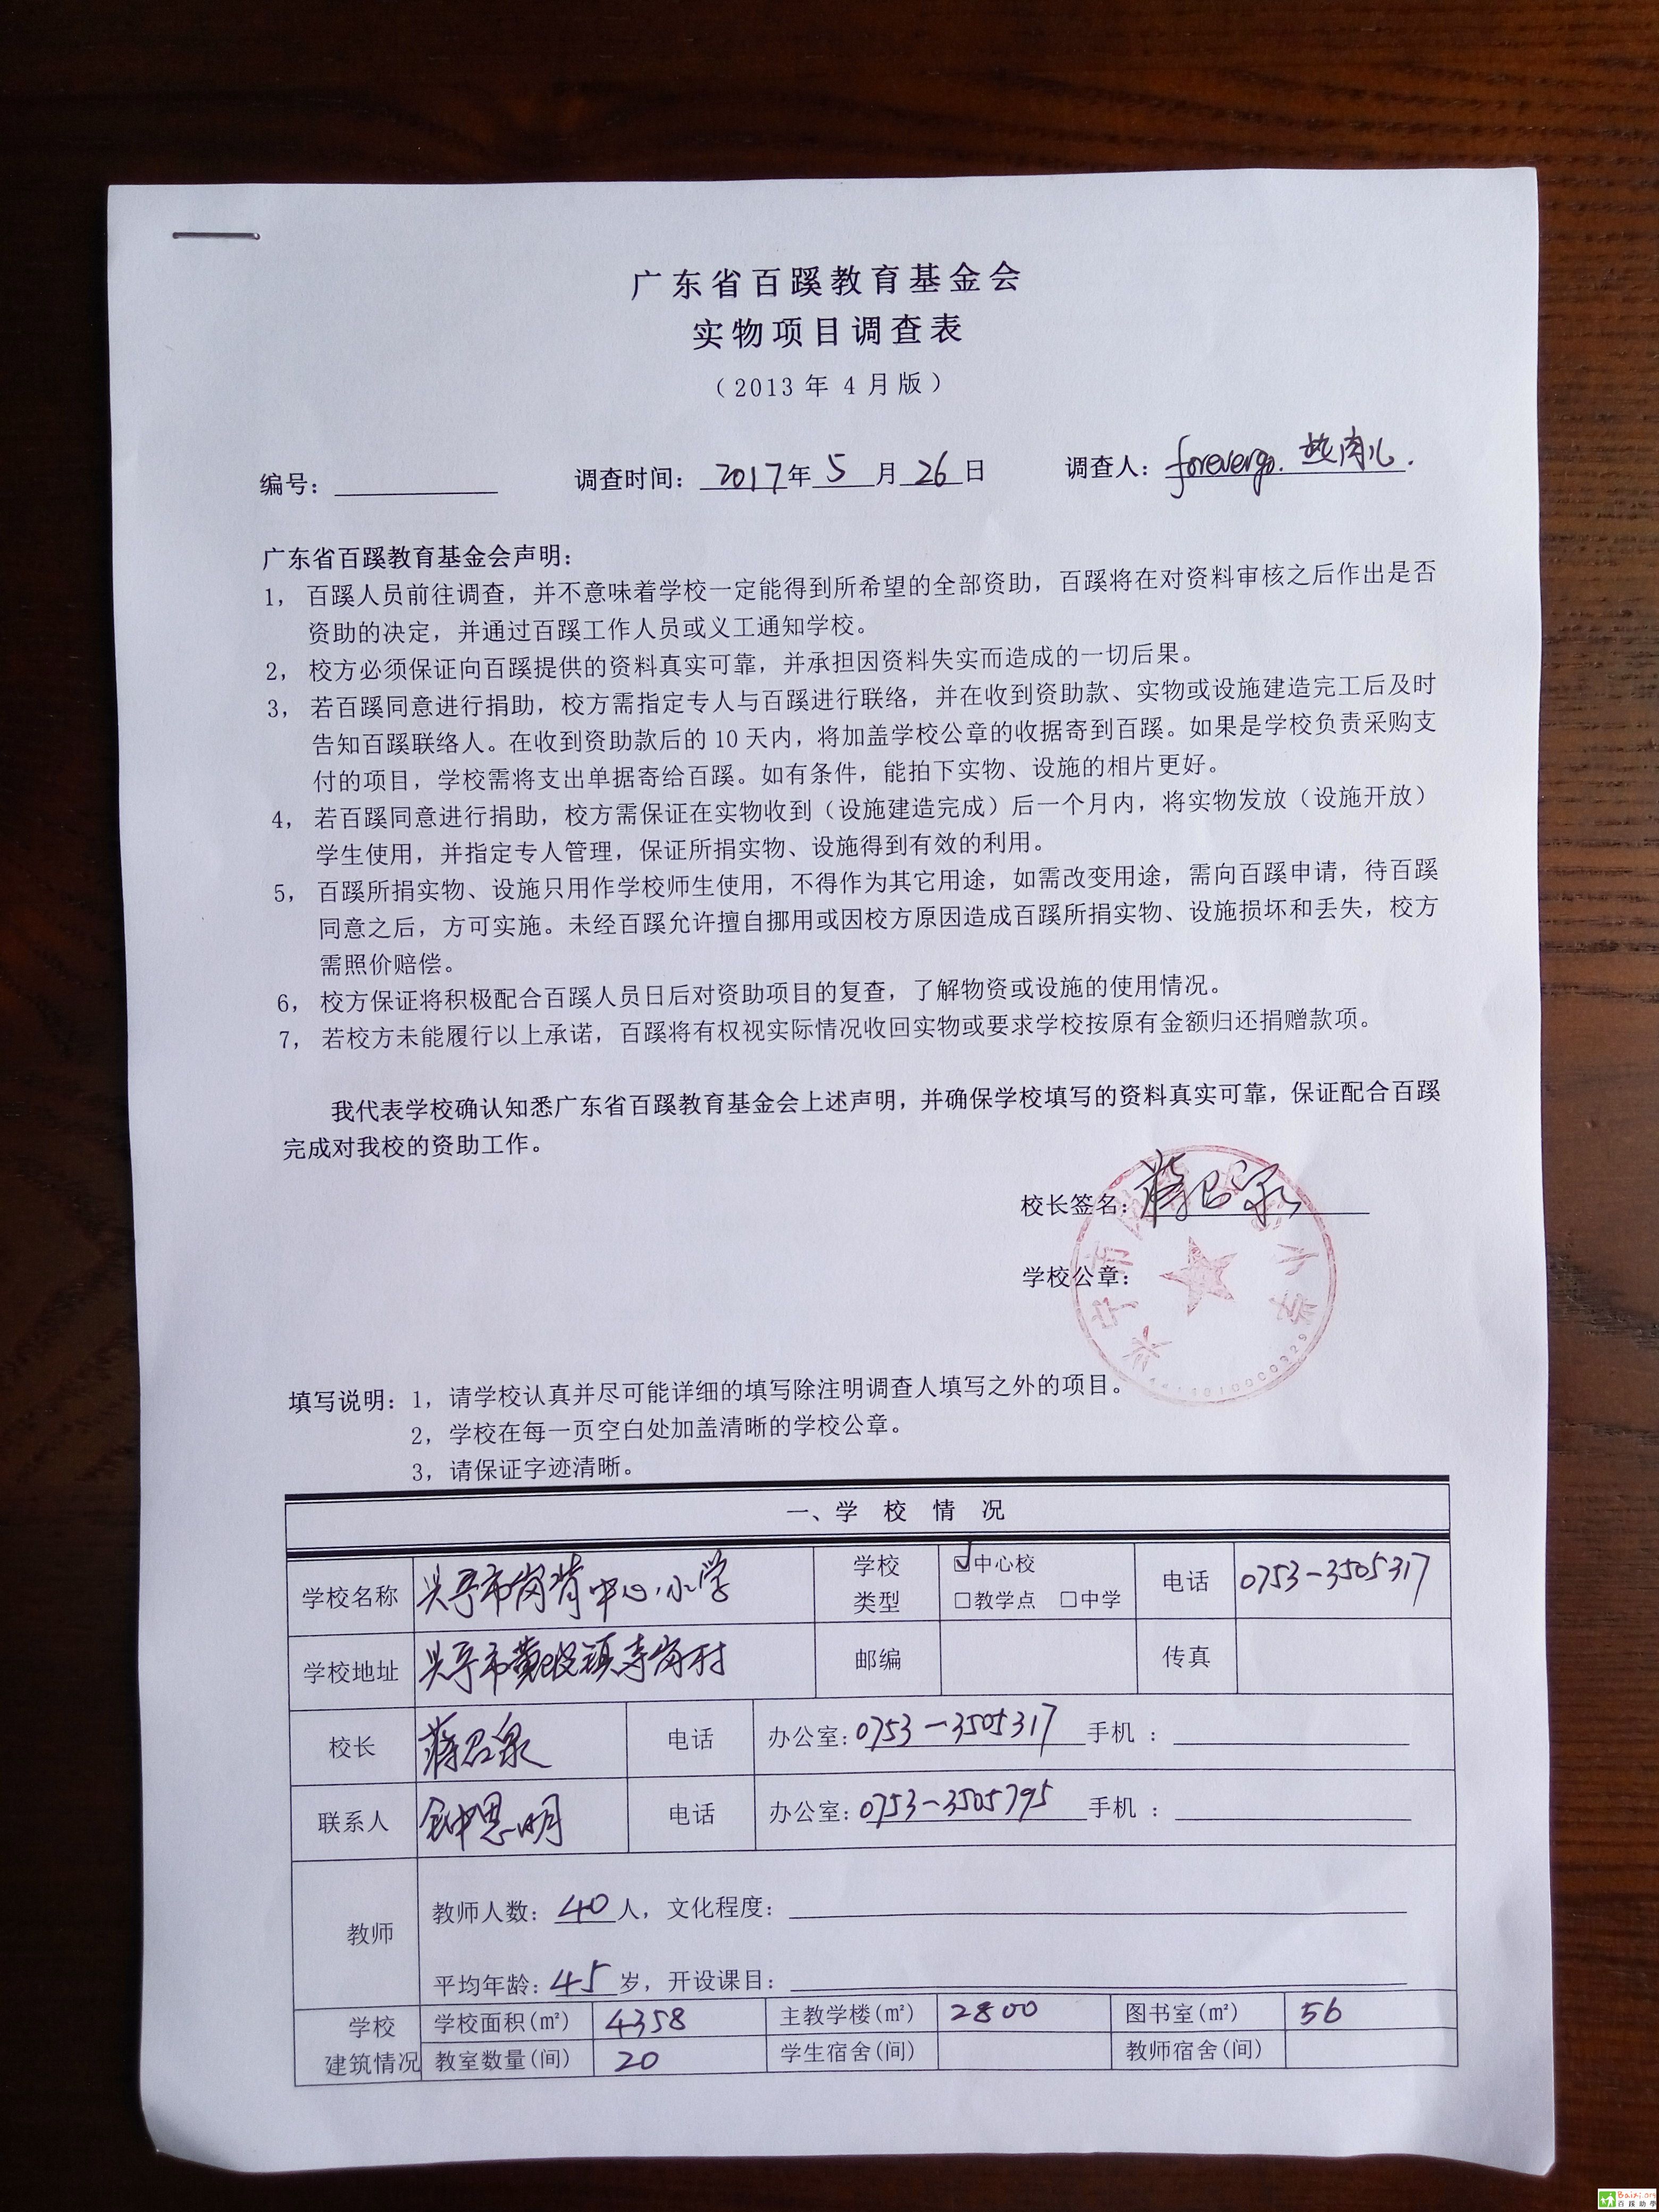 广东省百蹊教育基金会
实物项目调查表
（2013 年 4 月版）
编号： 调查时间： 2017年 5 月 26 日 调查人： forevergo. 热肉儿.
广东省百蹊教育基金会声明：
1， 百蹊人员前往调查，并不意味着学校一定能得到所希望的全部资助，百蹊将在对资料审核之后作出是否
资助的决定，并通过百蹊工作人员或义工通知学校。
2， 校方必须保证向百蹊提供的资料真实可靠，并承担因资料失实而造成的一切后果。
3， 若百蹊同意进行捐助，校方需指定专人与百蹊进行联络，并在收到资助款、实物或设施建造完工后及时
告知百蹊联络人。在收到资助款后的 10 天内，将加盖学校公章的收据寄到百蹊。如果是学校负责采购支
付的项目，学校需将支出单据寄给百蹊。如有条件，能拍下实物、设施的相片更好。
4， 若百蹊同意进行捐助，校方需保证在实物收到（设施建造完成）后一个月内，将实物发放（设施开放）
学生使用，并指定专人管理，保证所捐实物、设施得到有效的利用。
5， 百蹊所捐实物、设施只用作学校师生使用，不得作为其它用途，如需改变用途，需向百蹊申请，待百蹊
同意之后，方可实施。未经百蹊允许擅自挪用或因校方原因造成百蹊所捐实物、设施损坏和丢失，校方
需照价赔偿。
6， 校方保证将积极配合百蹊人员日后对资助项目的复查，了解物资或设施的使用情况。
7， 若校方未能履行以上承诺，百蹊将有权视实际情况收回实物或要求学校按原有金额归还捐赠款项。
我代表学校确认知悉广东省百蹊教育基金会上述声明，并确保学校填写的资料真实可靠，保证配合百蹊
完成对我校的资助工作。
校长签名：蒋召泉
学校公章：
填写说明：1，请学校认真并尽可能详细的填写除注明调查人填写之外的项目。
2，学校在每一页空白处加盖清晰的学校公章。
3，请保证字迹清晰。
一、学 校 情 况
学校名称 兴宁市岗背中心小学 学校类型 ☑中心校 □教学点 □中学 电话 0753-3505317
学校地址 兴宁市黄陂镇寺岗村 邮编 传真
校长 蒋召泉 电话 办公室：0753-3505317 手机：
联系人 钟思明 电话 办公室：0753-3505795 手机：
教师 教师人数： 40 人，文化程度：
平均年龄： 45 岁，开设课目：
学校建筑情况 学校面积(㎡) 4358 主教学楼(㎡) 2800 图书室(㎡) 56
教室数量(间) 20 学生宿舍(间) 教师宿舍(间)
百蹊助學